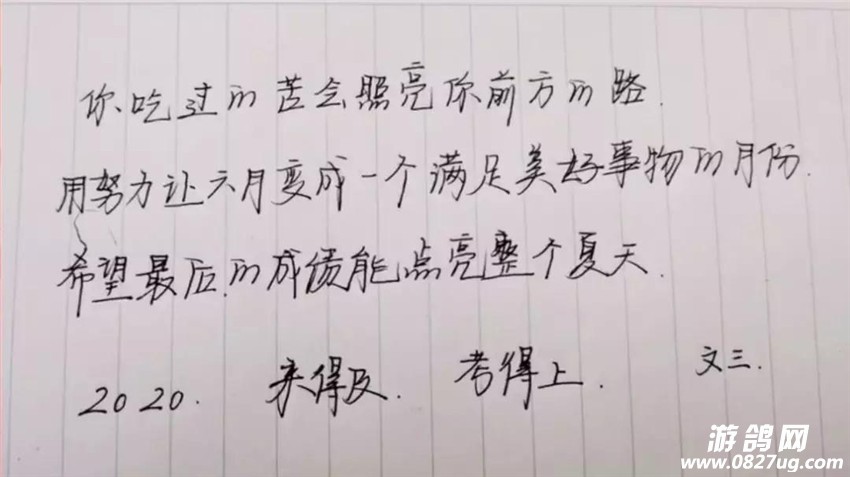 你吃过的苦会照亮你前方的路.
用努力让六月变成一个满足美好事物的月份.
希望最后的成绩能点亮整个夏天.
2020. 来得及. 考得上. 文三.
游鸽网
www.0827ug.com